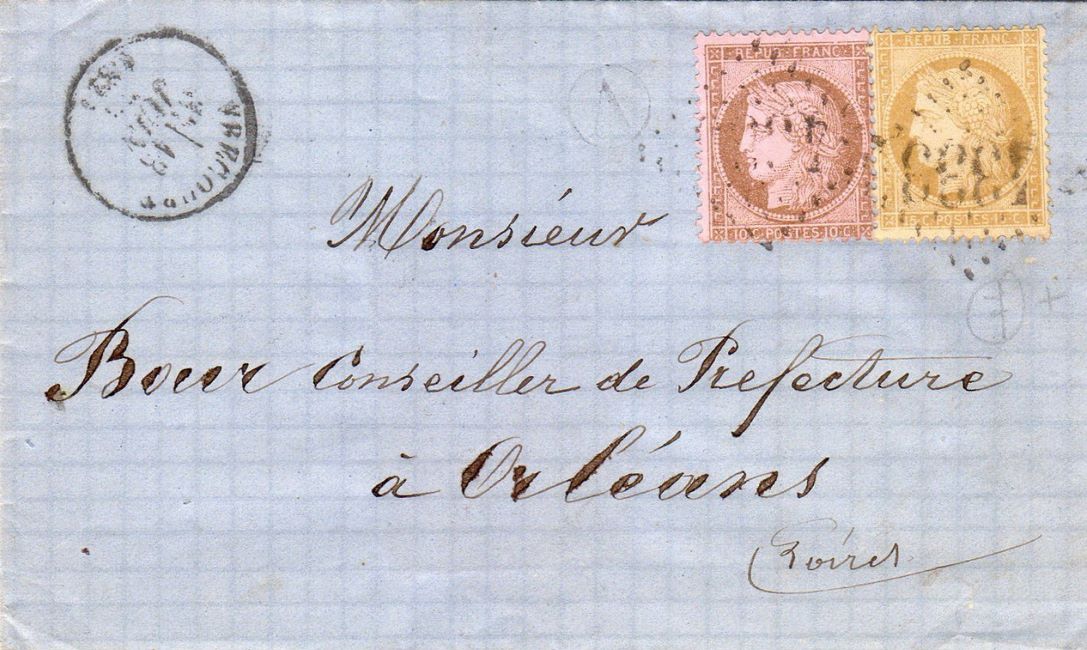 REPUB · FRANC
REPUB · FRANC
10 · C · POSTES · 10 · C
15 · C · POSTES · 15 · C
A
Monsieur
Boeur Conseiller de Prefecture
à Orléans
Loiret